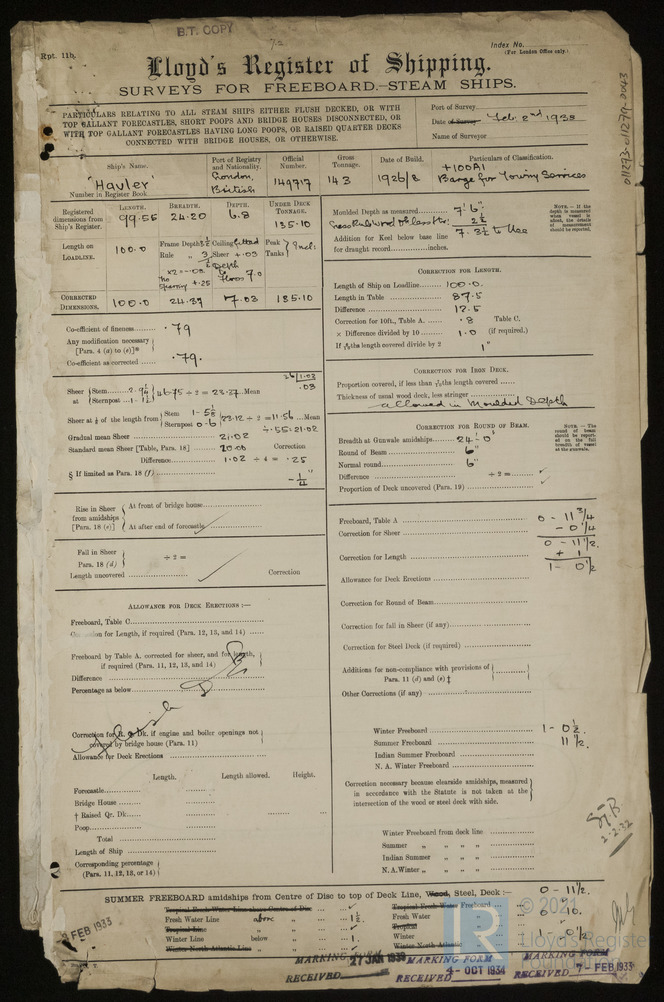 B.T. COPY
Rpt. 11b.
Index No.
(For London Office only.)
Lloyd's Register of Shipping.
SURVEYS FOR FREEBOARD.—STEAM SHIPS.
PARTICULARS RELATING TO ALL STEAM SHIPS EITHER FLUSH DECKED, OR WITH
TOP GALLANT FORECASTLES, SHORT POOPS AND BRIDGE HOUSES DISCONNECTED, OR
WITH TOP GALLANT FORECASTLES HAVING LONG POOPS, OR RAISED QUARTER DECKS
CONNECTED WITH BRIDGE HOUSES, OR OTHERWISE.
Port of Survey
Date of Survey Feb. 2nd 1938
Name of Surveyor
011273-011279-0043
Ship's Name. Port of Registry and Nationality. Official Number. Gross Tonnage. Date of Build. Particulars of Classification.
"Hauler" London, British 149717 143 1926/8 +100A1 Barge for Towing Services
Number in Register Book
LENGTH. BREADTH. DEPTH. UNDER DECK TONNAGE.
Registered dimensions from Ship's Register. 99.55 24.20 6.8 135.10
Length on LOADLINE. 100.0 Frame Depth Ceiling fitted Peak Tanks } Incl:
Rule Sheer + .03
Depth
Floors 7.0
CORRECTED DIMENSIONS. 100.0 24.37 7.03 135.10
Co-efficient of fineness .79
Any modification necessary
[Para. 4 (a) to (e)]*
Co-efficient as corrected .79.
Sheer at { Stem
Sternpost } 46.75 ÷ 2 = 23.37 Mean
Sheer at ⅛ of the length from { Stem 1-5⅛
Sternpost 0-6 } 23.12 ÷ 2 = 11.56 Mean
÷ .55 = 21.02
Gradual mean Sheer 21.02
Standard mean Sheer [Table, Para. 18] 20.00 Correction
Difference 1.02 ÷ 4 = .25
§ If limited as Para. 18 (f) - ¼"
Rise in Sheer from amidships [Para. 18 (e)] { At front of bridge house
At after end of forecastle
Fall in Sheer
Para. 18 (d) ÷ 2 =
Length uncovered Correction
ALLOWANCE FOR DECK ERECTIONS :—
Freeboard, Table C
Correction for Length, if required (Para. 12, 13, and 14)
Freeboard by Table A. corrected for sheer, and for length,
if required (Para. 11, 12, 13, and 14)
Difference
Percentage as below
Correction for R. Q. Dk. if engine and boiler openings not
covered by bridge house (Para. 11)
Allowance for Deck Erections
Length. Length allowed. Height.
Forecastle
Bridge House
† Raised Qr. Dk.
Poop
Total
Length of Ship
Corresponding percentage
(Para. 11, 12, 13, or 14)
Moulded Depth as measured 7'. 6"
2½
7. 3½ to Use
Addition for Keel below base line
for draught record inches.
NOTE.—If the depth is measured when vessel is afloat, the details of measurement should be reported.
CORRECTION FOR LENGTH.
Length of Ship on Loadline 100.0.
Length in Table 87.5
Difference 12.5
Correction for 10ft., Table A. .8 Table C.
× Difference divided by 10 1.0 (if required.)
If 6/10ths length covered divide by 2 1"
CORRECTION FOR IRON DECK.
Proportion covered, if less than 7/10ths length covered
Thickness of usual wood deck, less stringer
allowed in Moulded Depth
CORRECTION FOR ROUND OF BEAM.
Breadth at Gunwale amidships 24-0"
Round of Beam 6"
Normal round 6"
Difference ÷ 2 =
Proportion of Deck uncovered (Para. 19)
NOTE.—The round of beam should be reported on the full breadth of vessel at the gunwale.
Freeboard, Table A 0 - 11¾
Correction for Sheer - 0¼
0 - 11½.
Correction for Length + 1
1 - 0½
Allowance for Deck Erections
Correction for Round of Beam
Correction for fall in Sheer (if any)
Correction for Steel Deck (if required)
Additions for non-compliance with provisions of
Para. 11 (d) and (e) ‡
Other Corrections (if any)
Winter Freeboard 1 - 0½.
Summer Freeboard 11½.
Indian Summer Freeboard
N. A. Winter Freeboard
Correction necessary because clearside amidships, measured
in accordance with the Statute is not taken at the
intersection of the wood or steel deck with side.
Winter Freeboard from deck line
Summer „ „ „ „
Indian Summer „ „ „ „
N. A. Winter „ „ „ „
2.2.32
SUMMER FREEBOARD amidships from Centre of Disc to top of Deck Line, Wood, Steel, Deck :— 0 - 11½.
Tropical Fresh Water Line above Centre of Disc Tropical Fresh Water Freeboard
Fresh Water Line above 1½. Fresh Water 0 10.
Tropical Line Tropical
Winter Line below 1. Winter 1 - 0½
North Atlantic Line North Atlantic
FEB 1933
MARKING FORM RECEIVED 27 JAN
MARKING FORM RECEIVED 4- OCT 1934
MARKING FORM RECEIVED 7- FEB 1933
© 2021
Lloyd's Register
Foundation